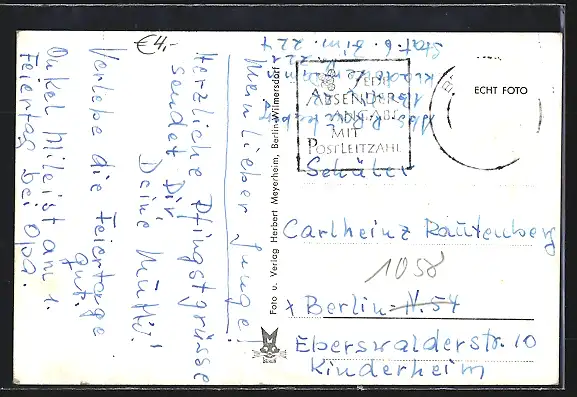 €4,-
Mein lieber Junge!
Herzliche Pfingstgrüsse
sendet Dir
Deine Mutti!
Verlebe die Feiertage
gut.
Onkel Mile ist am 1.
Feiertag bei Opa.
Foto u. Verlag Herbert Meyerheim, Berlin-Wilmersdorf
Stat. 6. Zim. 227
ABSENDER-
ANGABE
MIT
POSTLEITZAHL
ECHT FOTO
Schüler
Carlheinz Rautenberg
1058
x Berlin-N.54
Eberswalderstr. 10
Kinderheim